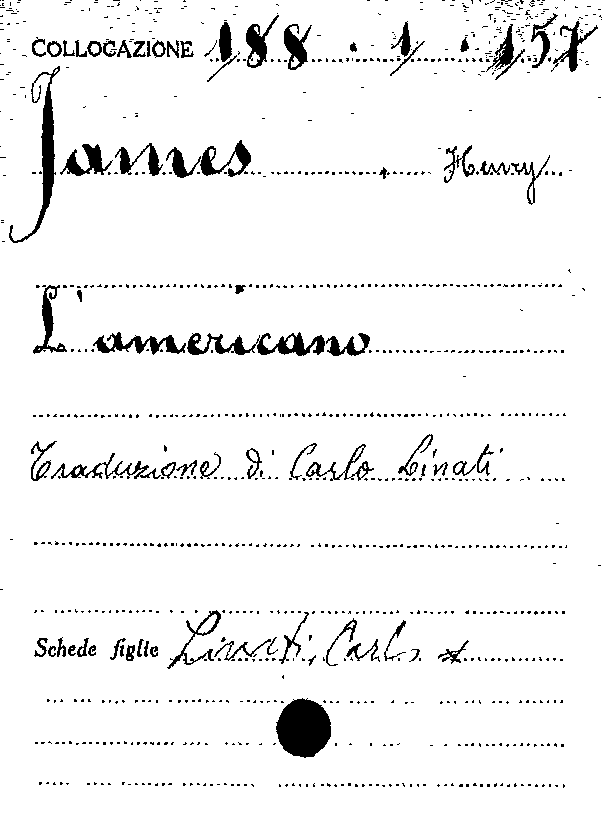 COLLOCAZIONE 188 . 1 . 157
James . Henry
L'americano
Traduzione di Carlo Linati
Schede figlie Linati, Carlo *